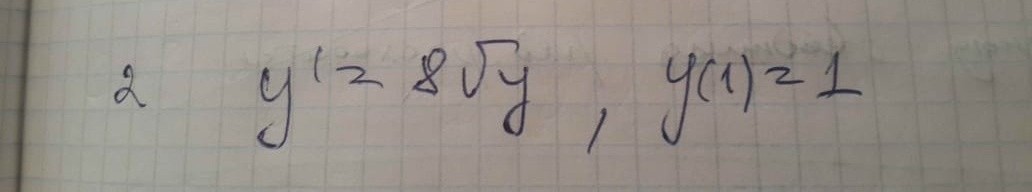 2 y' = 8√y , y(1) = 1